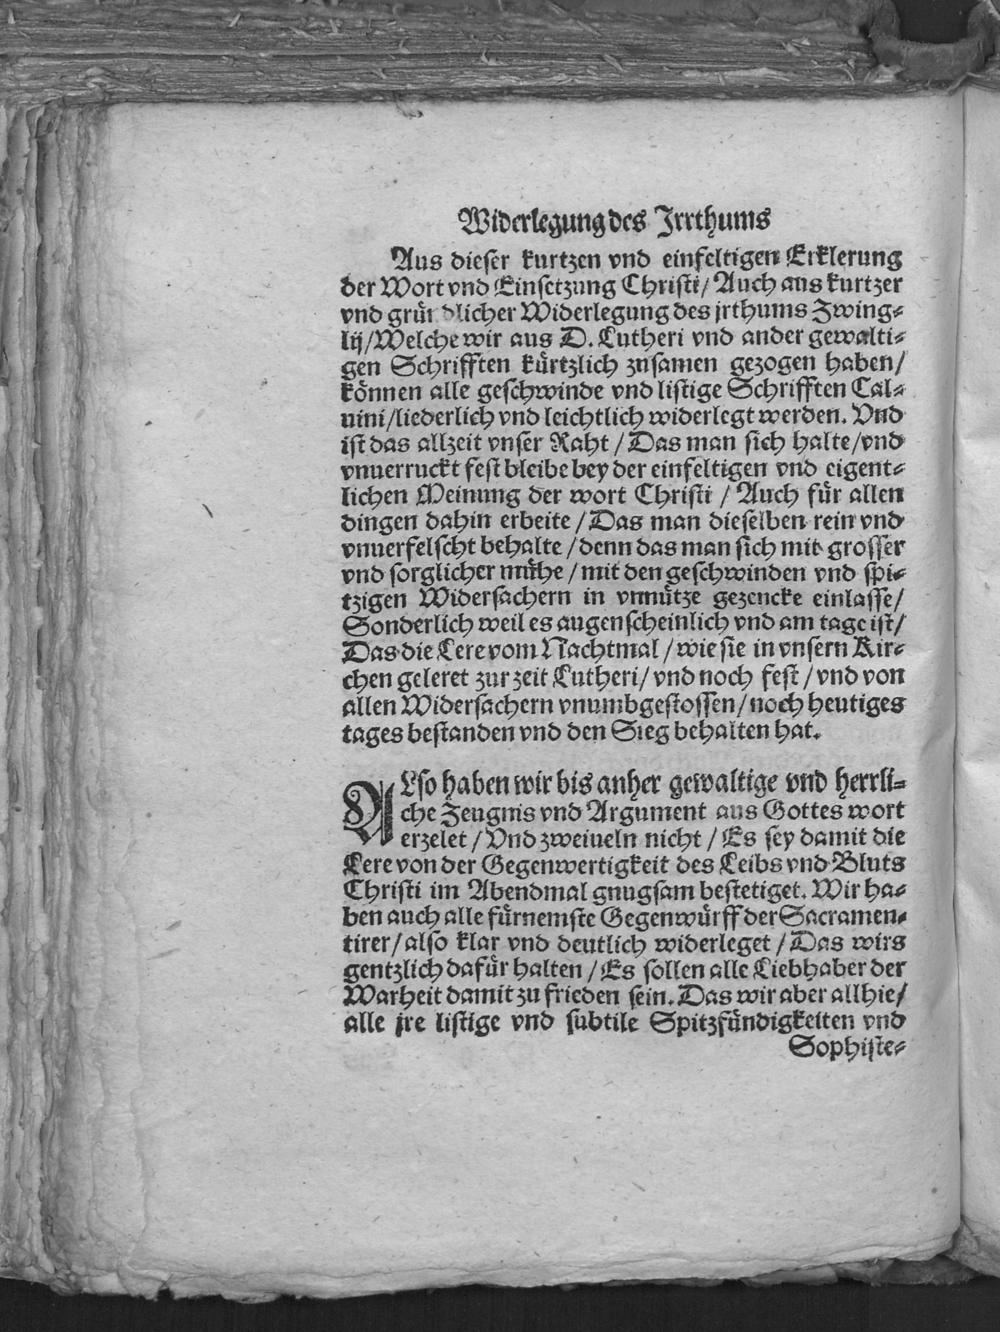 Widerlegung des Jrrthums
Aus dieser kurtzen vnd einfeltigen Erklerung
der Wort vnd Einsetzung Christi/ Auch aus kurtzer
vnd gründlicher Widerlegung des jrthums Zwing-
lij/Welche wir aus D. Lutheri vnd ander gewalti-
gen Schrifften kürtzlich zusamen gezogen haben/
können alle geschwinde vnd listige Schrifften Cal-
uini/liederlich vnd leichtlich widerlegt werden. Vnd
ist das allzeit vnser Raht / Das man sich halte/vnd
vnuerruckt fest bleibe bey der einfeltigen vnd eigent-
lichen Meinung der wort Christi / Auch für allen
dingen dahin erbeite / Das man dieselben rein vnd
vnuerfelscht behalte / denn das man sich mit grosser
vnd sorglicher mühe / mit den geschwinden vnd spi-
tzigen Widersachern in vnnütze gezencke einlasse/
Sonderlich weil es augenscheinlich vnd am tage ist/
Das die Lere vom Nachtmal / wie sie in vnsern Kir-
chen geleret zur zeit Lutheri/ vnd noch fest / vnd von
allen Widersachern vnumbgestossen/ noch heutiges
tages bestanden vnd den Sieg behalten hat.
ALso haben wir bis anher gewaltige vnd herrli-
che Zeugnis vnd Argument aus Gottes wort
erzelet / Vnd zweiueln nicht / Es sey damit die
Lere von der Gegenwertigkeit des Leibs vnd Bluts
Christi im Abendmal gnugsam bestetiget. Wir ha-
ben auch alle fürnemste Gegenwürff der Sacramen-
tirer/ also klar vnd deutlich widerleget / Das wirs
gentzlich dafür halten / Es sollen alle Liebhaber der
Warheit damit zu frieden sein. Das wir aber allhie/
alle jre listige vnd subtile Spitzfündigkeiten vnd
Sophiste-